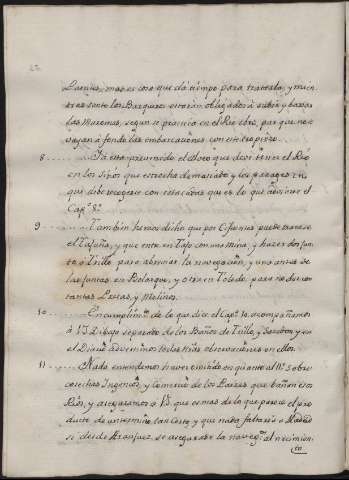 mas es cosa que dá tiempo para tratarla, y mien
tras tanto los Barqueros estarán obligados á subir y baxar
las Maromas, segun se practica en el Rio Ebro, por que no se
vayan á fondo las embarcaciones con este tropiezo.
8 Ya está prevenido el aloro que deve tener el Rio
en los sitios que estrecha demasiado y los parages en
que debe recogerse con estacadas que es lo que previene el
Cap.º 8.º
9 Tambien hemos dicho que por Cifuentes puede traerse
el Tajuña, y que entre en Tajo con una mina, y hacer
á Trillo para abreviar la navegacion, y una antes de
las juntas en Bolarque, y otra en Toledo, para no
tantas Presas, y Molinos.
10 En cumplim.to de lo que dice el Cap.º 10. acompañamos
á V.I. Dibujo separado de los Baños de Trillo, y Sacedon y en
el Diario advertimos todas n̄ras observaciones en ellos.
11 Nada entendemos haver omitido en quanto al 11.º sobre
cosechas Ingenios, y Comercio de los Payses que bañan esos
Rios, y aseguramos á V.I. que es mas de lo que parece el pro
ducto de un termino tan corto y que nada faltaria á Madrid
si desde Aranjuez, se asegurase la naveg.on al nacimien
to